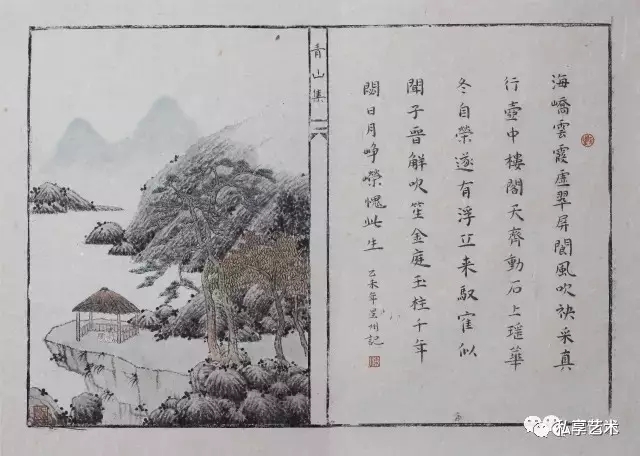 海嶠雲霞虛翠屏閬風吹袂采真
行壺中樓閣天齊動石上瑶華
冬自榮遂有浮丘来馭寉似
聞子晉解吹笙金庭玉柱千年
閟日月崢嶸愧此生
乙未年星州記
青山集
私享艺术